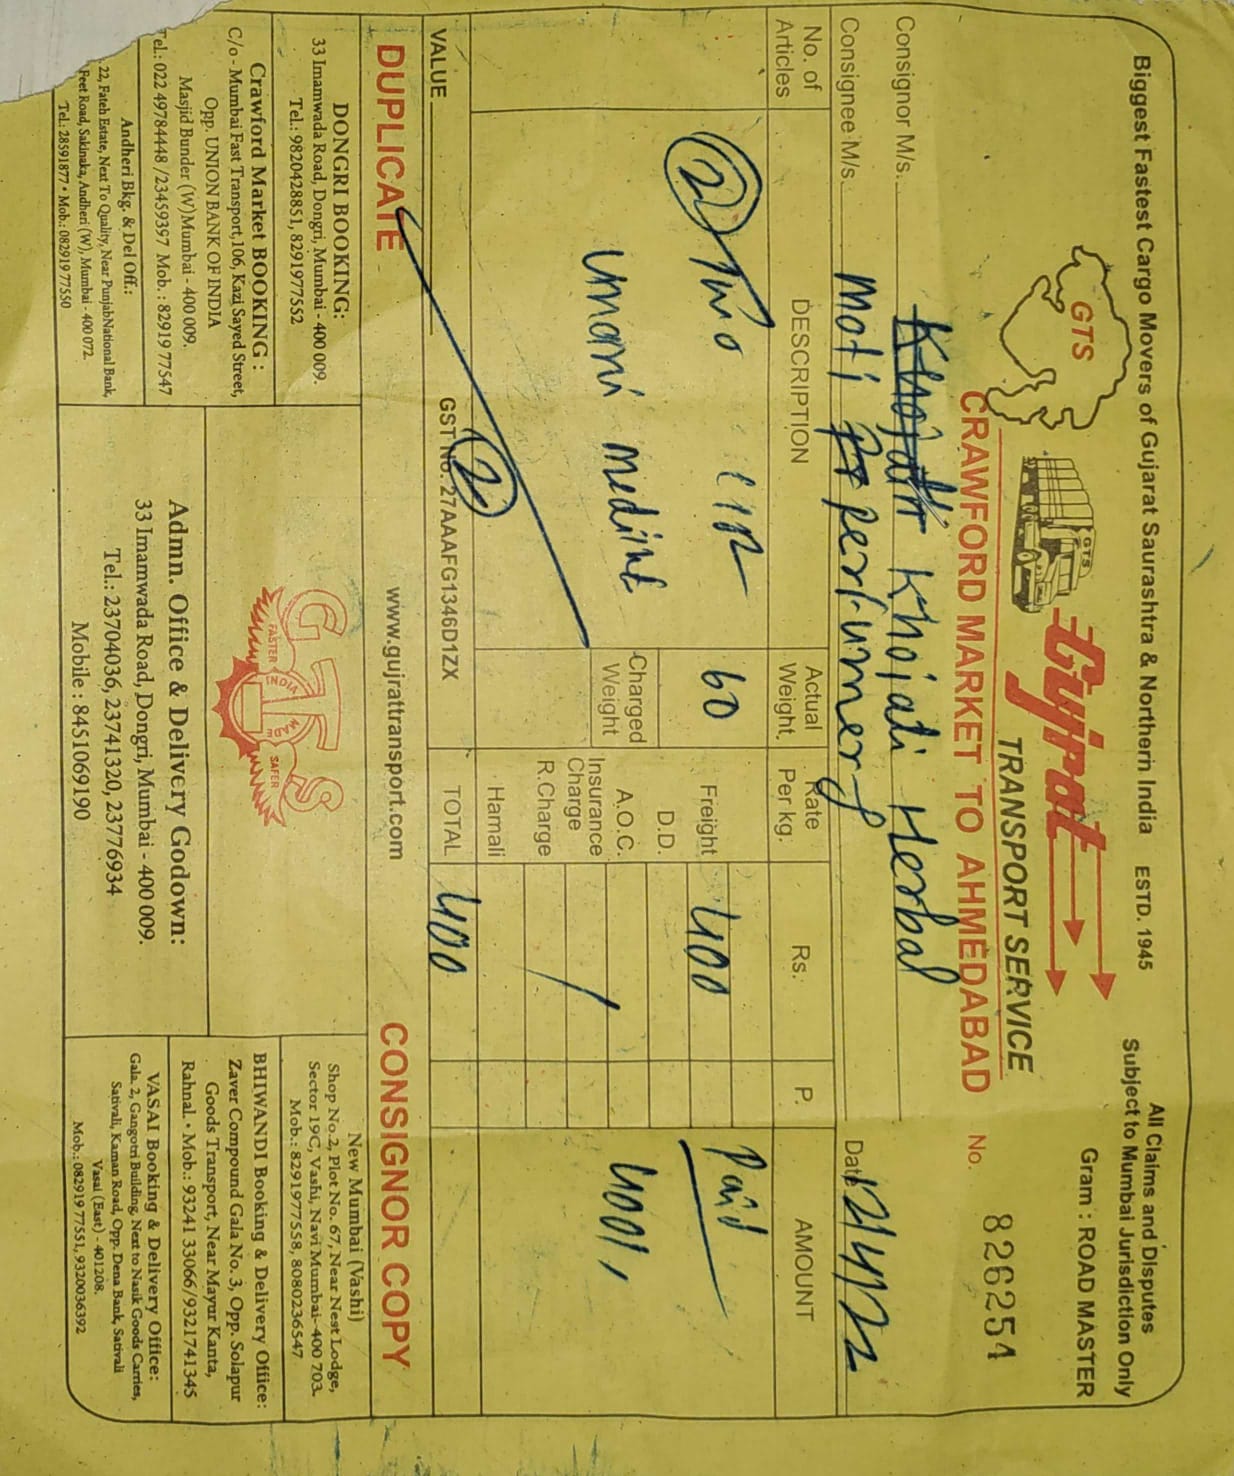 Biggest Fastest Cargo Movers of Gujarat Saurashtra & Northern India ESTD. 1945
All Claims and Disputes
Subject to Mumbai Jurisdiction Only
GTS
GTS
Gujrat
TRANSPORT SERVICE
Gram : ROAD MASTER
CRAWFORD MARKET TO AHMEDABAD No. 826254
Consignor M/s. Khojati Khojati Herbal
Consignee M/s. Moti Pr perfumery Date 12/4/22
No. of Articles DESCRIPTION Actual Weight. Rate Per kg. Rs. P. AMOUNT
2 Two 60 Freight 400 Paid
D.D.
Unani Charged Weight A.O.C. 400/,
Insurance Charge
R.Charge
Hamali
2
VALUE GST No. 27AAAFG1346D1ZX TOTAL 400
DUPLICATE www.gujrattransport.com CONSIGNOR COPY
DONGRI BOOKING:
33 Imamwada Road, Dongri, Mumbai - 400 009.
Tel.: 9820428851, 8291977552
Crawford Market BOOKING :
C/o - Mumbai Fast Transport,106, Kazi Sayed Street,
Opp. UNION BANK OF INDIA
Masjid Bunder (W)Mumbai - 400 009.
Tel.: 022 49784448 /23459397 Mob. : 82919 77547
Andheri Bkg. & Del Off.:
22, Fateh Estate, Next To Quality, Near Punjab National Bank,
Feet Road, Sakinaka, Andheri (W), Mumbai - 400 072.
Tel.: 28591877 • Mob.: 082919 77550
GTS
FASTER
INDIA
SAFER
Admn. Office & Delivery Godown:
33 Imamwada Road, Dongri, Mumbai - 400 009.
Tel.: 23704036, 23741320, 23776934
Mobile : 8451069190
New Mumbai (Vashi)
Shop No.2, Plot No. 67, Near Nest Lodge,
Sector 19C, Vashi, Navi Mumbai- 400 703.
Mob.: 8291977558, 8080236547
BHIWANDI Booking & Delivery Office:
Zaver Compound Gala No. 3, Opp. Solapur
Goods Transport, Near Mayur Kanta,
Rahnal. • Mob.: 93241 33066/9321741345
VASAI Booking & Delivery Office:
Gala. 2, Gangotri Building, Next to Nasik Goods Carries,
Sativali, Kaman Road, Opp. Dena Bank, Sativali
Vasai (East) - 401208.
Mob.: 082919 77551, 9320036392